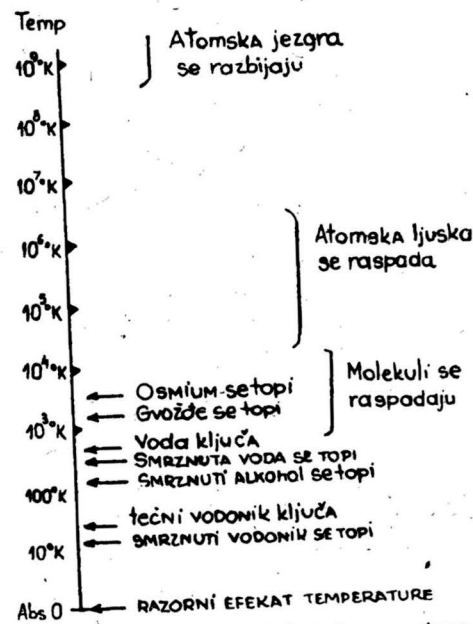 Temp
10⁹°K
Atomska jezgra
se razbijaju
10⁸°K
10⁷°K
10⁶°K
Atomska ljuska
se raspada
10⁵°K
10⁴°K
Molekuli se
raspadaju
Osmium-se topi
Gvožđe se topi
10³°K
Voda ključa
SMRZNUTA VODA SE TOPI
SMRZNUTI ALKOHOL se topi
100°K
tečni VODONIK KLJUČA
SMRZNUTI VODONIK SE TOPI
10°K
Abs 0
RAZORNI EFEKAT TEMPERATURE